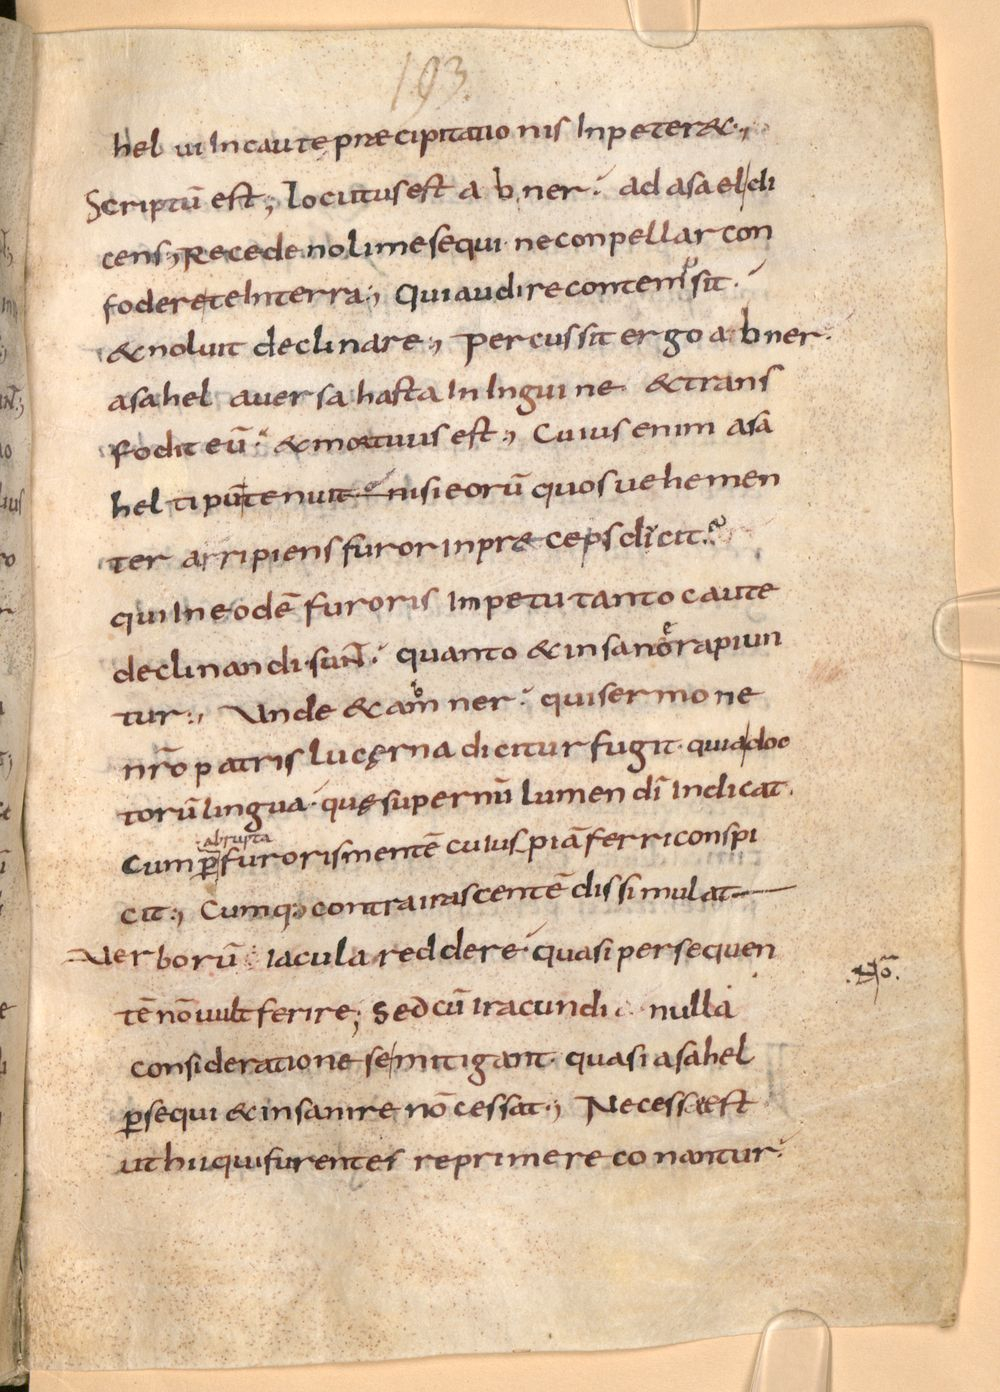 193.
hel ui Incaute præcipitationis Inpeteret.,
Scriptū est; Locutus est abner. ad asael di
cens; Recede noli me sequi. ne conpellar con
fodere te In terra., Qui audire contempsit.
& noluit declinare., Percussit ergo abner.
asahel aversa hasta In Inguine & trans
fodit eū. & mortuus est., Cuius enim asa
hel tipū tenuit. nisi eorū quos vehemen
ter arripiens furor in præceps dicit.
qui In eodē furoris Inpetu tanto caute
declinandi sunt. quanto & insane rapiun
tur., Unde & abner. qui sermone
nr̄o patris lucęrna dicitur fugit. quia doc
torū lingua. quę supernū lumen dī Indicat.
Cum p̄ abrupta furoris mentē cuiuspiā ferri conspi
cit., Cumq; contra irascentē dissimulat
Verborū iacula reddere. quasi persequen
tē nō vult ferire; Sed cū iracundi nulla
consideratione se mitigant. quasi asahel
ꝑsequi & insanire nō cessat., Necesse est
ut hii qui furentes reprimere conantur.